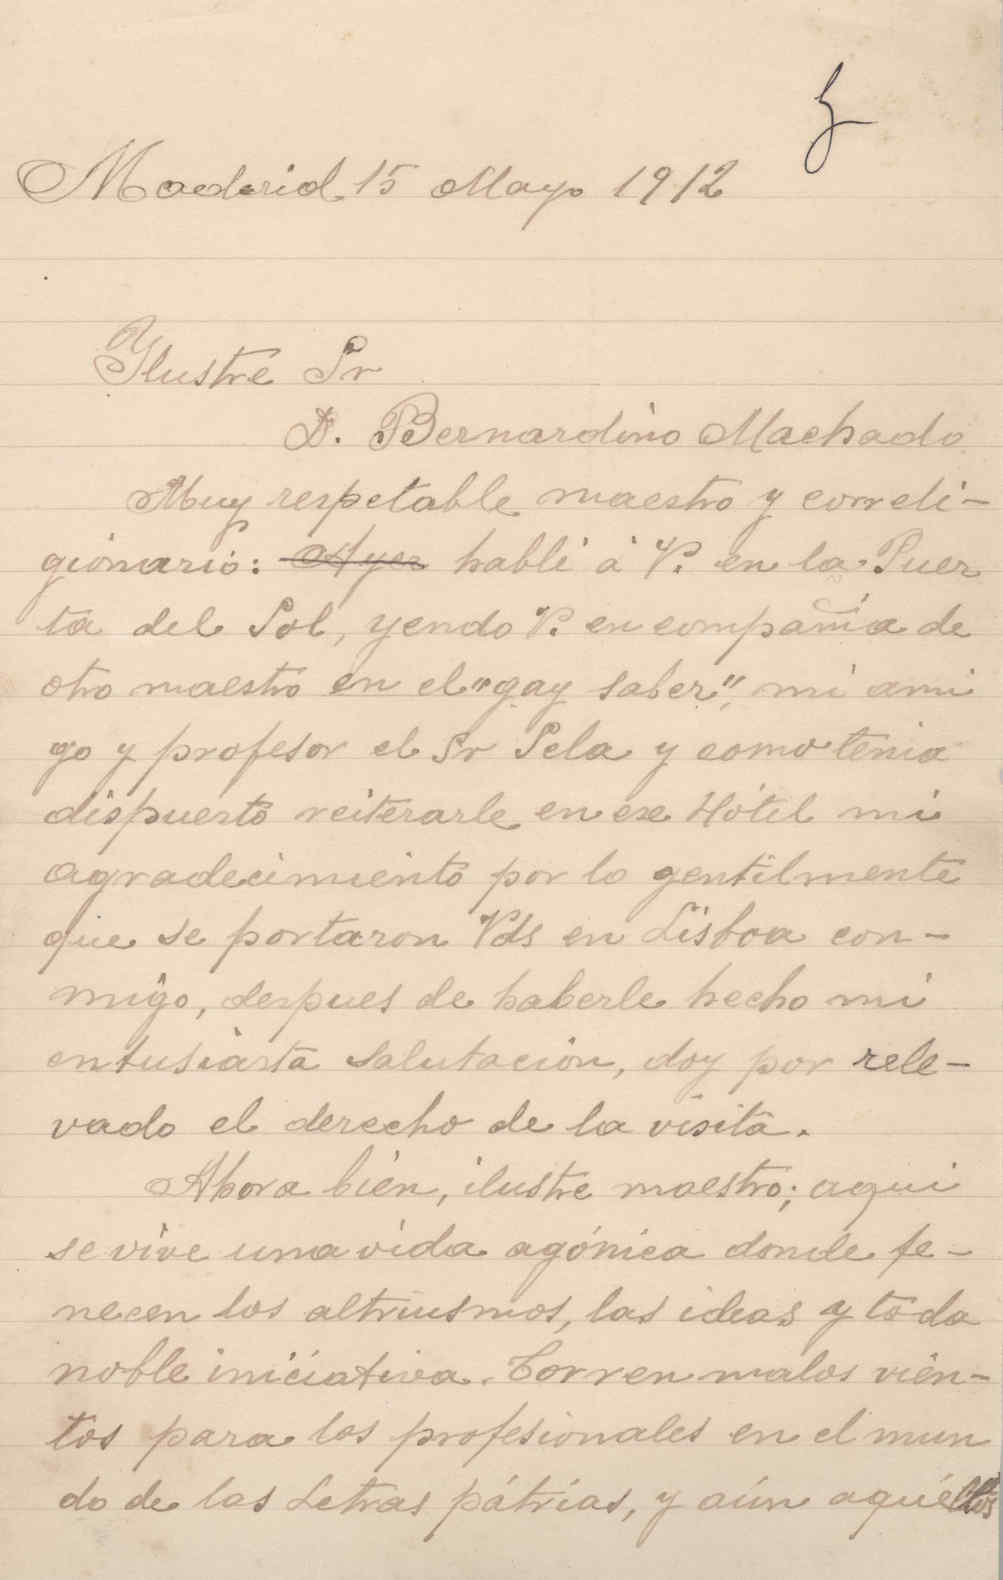 Madrid 15 Mayo 1912
Ylustre Sr
D. Bernardino Machado
Muy respetable maestro y correli-
gionario: Ayer hablé á V. en la Puer
ta del Sol, yendo V. en compañía de
otro maestro en el "gay saber", mi ami
go y profesor el Sr Sela y como tenia
dispuesto reiterarle en ese Hótel mi
agradecimiento por lo gentilmente
que se portaron Vds en Lisboa con-
migo, despues de haberle hecho mi
entusiasta salutación, doy por rele-
vado el derecho de la visita.
Ahora bién, ilustre maestro; aqui
se vive una vida agónica donde fe-
necen los altriusmos, las ideas y toda
noble iniciativa. Corren malos vien-
tos para los profesionales en el mun
do de las Letras pátrias, y aún aquéllos